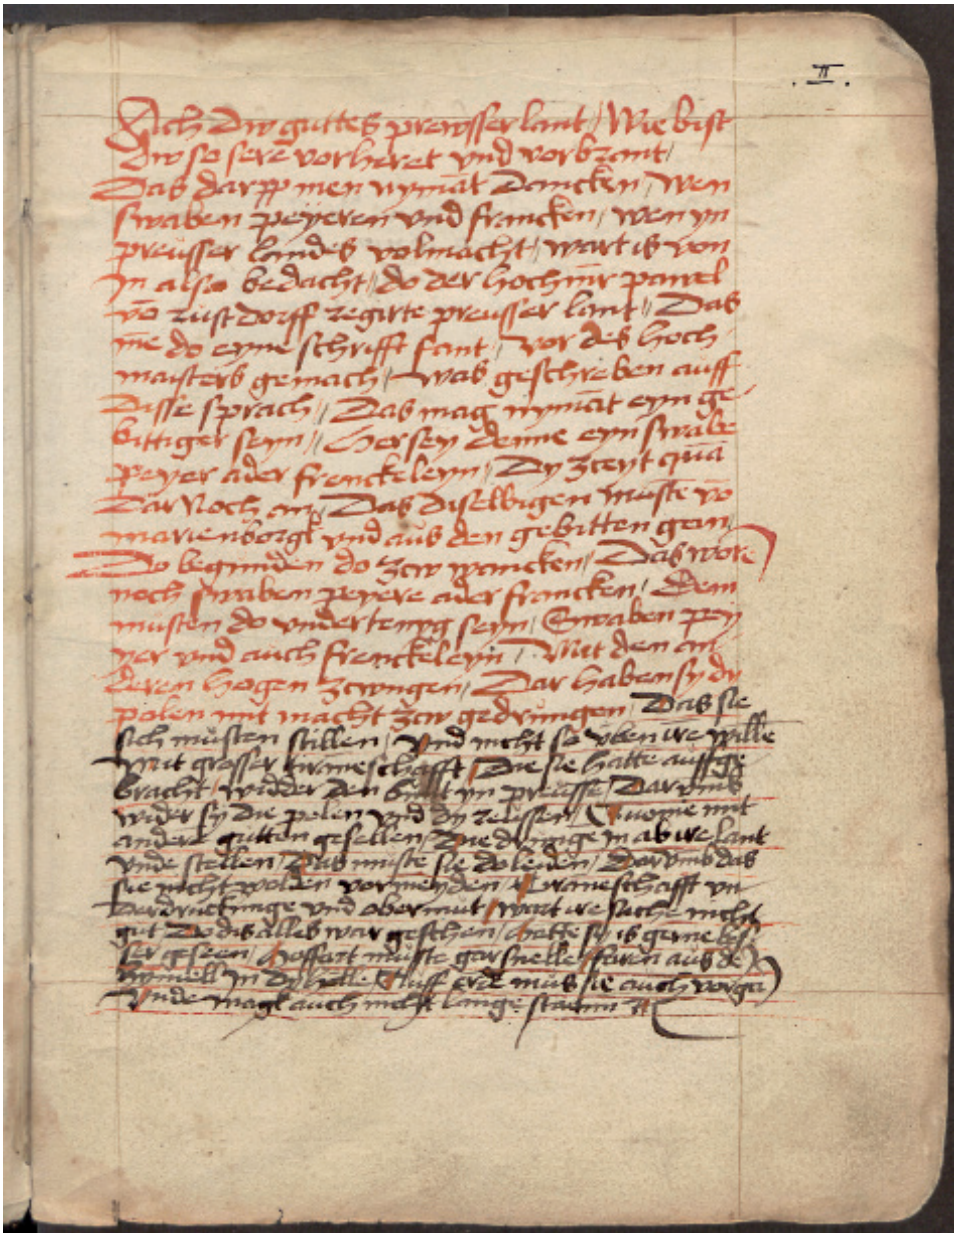 .II.
Ach Dw guttes prewsser lant / Wie bist
Dw so sere vorheret vnd vorbrant /
Das darpp men nymāt Dancken / Wen
swaben peyeren vnd francken / wen yn
preusser landes volmacht / wart is von
In also bedacht // do der hochmr pawel
vō rustdorff regirte preusser lant // Das
mē do eyne schrifft fant / vor des hoch
maisters gemach / was geschreben auff
Disse sprach // Das mag nymāt eyn ge
bittiger seyn // Her sey denne eyn swabe
peyer ader frenckeleyn / Dy zceyt quā
Dar Noch an / Das diselbigen muste vō
marienborgk vnd aus den gebitten gan /
Do begunden do zcw wancken / Das wore
noch swaben peyere ader francken / Dem
musten do vndertenyg seyn / Swaben pey
yer vnd auch frenckeleyn / Mit den an
deren hogen zcwngen / Dar haben sy dy
polen mit macht zcw gedrungen / Das sie
sich musten stillen / vnd nicht so vben ire wille
mit grosser / Die sie hatte auffge
bracht / widder den yn preusse / Dar vmb
wider sy die polen vnd dy reussen / mit
andere gutten gesellen / in ab ire lant
vnde stellen / Das muste sie do leiden / Dar vmb das
sie nicht wolden vormeyden / vn
Derdruckunge vnd obermut / wart ire sache nicht
gut Do dis alles war geschen / hette sy is gerne bes
ser geseen / Hoffart muste gar snelle / faren aus dē
hymell In dy helle / Auff erde mus sie auch vorgā
Vnde magk auch nicht lange staenn